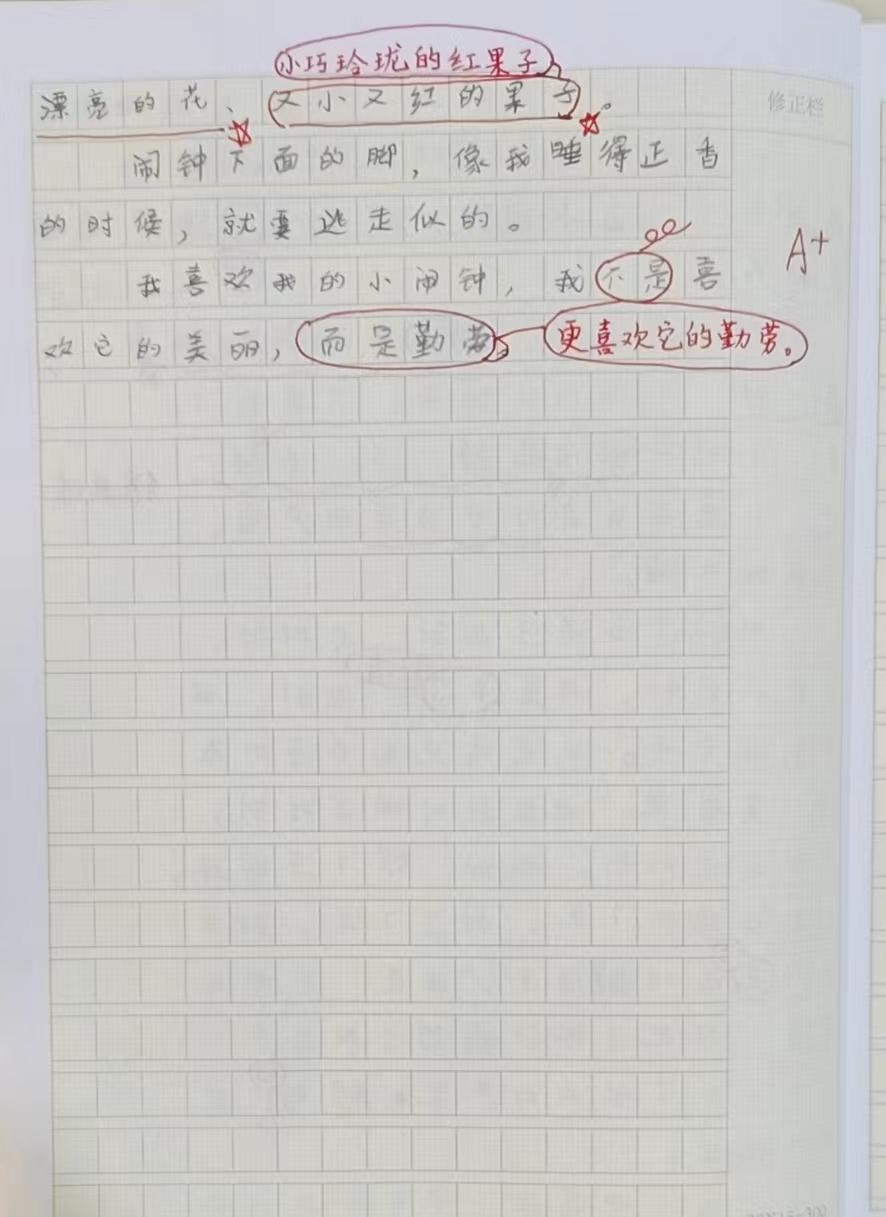 小巧玲珑的红果子
漂亮的花、又小又红的果子。
修正栏
闹钟下面的脚，像我睡得正香
的时候，就要逃走似的。
A+
我喜欢我的小闹钟，我不是喜
欢它的美丽，而是勤劳
更喜欢它的勤劳。